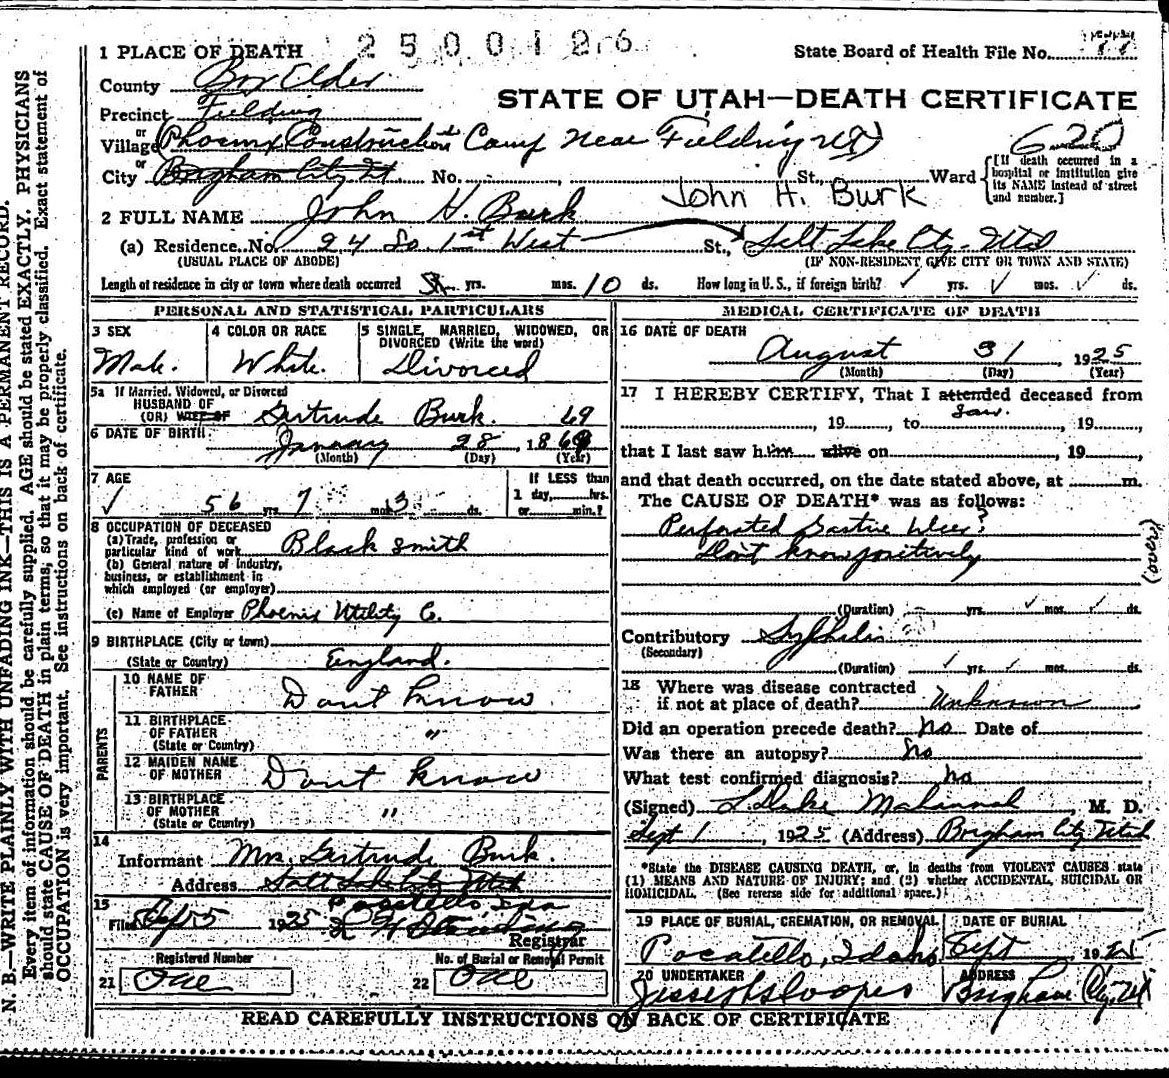 1 PLACE OF DEATH 2500126 State Board of Health File No.
County Box Elder
STATE OF UTAH—DEATH CERTIFICATE
Precinct Fielding
or
Village Phoenix Construction Camp Near Fielding Ut 620
or
City Brigham City Ut No. St., Ward
[If death occurred in a
hospital or institution give
its NAME instead of street
and number.]
John H. Burk
2 FULL NAME John H. Burk
(a) Residence. No. 24 So. 1st West St., Salt Lake City Utah
(USUAL PLACE OF ABODE) (IF NON-RESIDENT, GIVE CITY OR TOWN AND STATE)
Length of residence in city or town where death occurred yrs. mos. 10 ds. How long in U.S., if foreign birth? ✓ yrs. ✓ mos. ✓ ds.
PERSONAL AND STATISTICAL PARTICULARS
3 SEX 4 COLOR OR RACE 5 SINGLE, MARRIED, WIDOWED, OR
DIVORCED (Write the word)
Male. White. Divorced
5a If Married, Widowed, or Divorced
HUSBAND OF
(OR) WIFE OF Gertrude Burk. 69
6 DATE OF BIRTH January 28, 1869
(Month) (Day) (Year)
7 AGE If LESS than
1 day, hrs.
✓ 56 yrs. 7 mos. 3 ds. or min.?
8 OCCUPATION OF DECEASED
(a) Trade, profession or
particular kind of work Black Smith
(b) General nature of industry,
business, or establishment in
which employed (or employer)
(c) Name of Employer Phoenix Utility Co.
9 BIRTHPLACE (City or town)
(State or Country) England.
PARENTS
10 NAME OF
FATHER Dont Know
11 BIRTHPLACE
OF FATHER "
(State or Country)
12 MAIDEN NAME
OF MOTHER Dont Know
13 BIRTHPLACE
OF MOTHER "
(State or Country)
14
Informant Mrs. Gertrude Burk.
Address Salt Lake City Utah
Pocatello Ida
15
Filed Sept 5 1925
Registrar
Registered Number No. of Burial or Removal Permit
21 One 22 One
MEDICAL CERTIFICATE OF DEATH
16 DATE OF DEATH
August 31 1925
(Month) (Day) (Year)
17 I HEREBY CERTIFY, That I attended deceased from
saw.
, 19 , to , 19 ,
that I last saw him alive on , 19 ,
and that death occurred, on the date stated above, at m.
The CAUSE OF DEATH* was as follows:
Perforated Gastric Ulcer?
Dont know positively
(over)
(Duration) yrs. ✓ mos. ✓ ds.
Contributory Syphilis
(Secondary)
(Duration) ✓ yrs. ✓ mos. ds.
18 Where was disease contracted
if not at place of death? Unknown
Did an operation precede death? No Date of
Was there an autopsy? No
What test confirmed diagnosis? No
(Signed) M. D.
Sept 1, 1925 (Address) Brigham City Utah
*State the DISEASE CAUSING DEATH, or, in deaths from VIOLENT CAUSES state
(1) MEANS AND NATURE OF INJURY; and (2) whether ACCIDENTAL, SUICIDAL OR
HOMICIDAL. (See reverse side for additional space.)
19 PLACE OF BURIAL, CREMATION, OR REMOVAL DATE OF BURIAL
Pocatello, Idaho Sept 1925
20 UNDERTAKER ADDRESS
Brigham City, Ut
READ CAREFULLY INSTRUCTIONS ON BACK OF CERTIFICATE
N. B.—WRITE PLAINLY WITH UNFADING INK—THIS IS A PERMANENT RECORD.
Every item of information should be carefully supplied. AGE should be stated EXACTLY. PHYSICIANS
should state CAUSE OF DEATH in plain terms, so that it may be properly classified. Exact statement of
OCCUPATION is very important. See instructions on back of certificate.